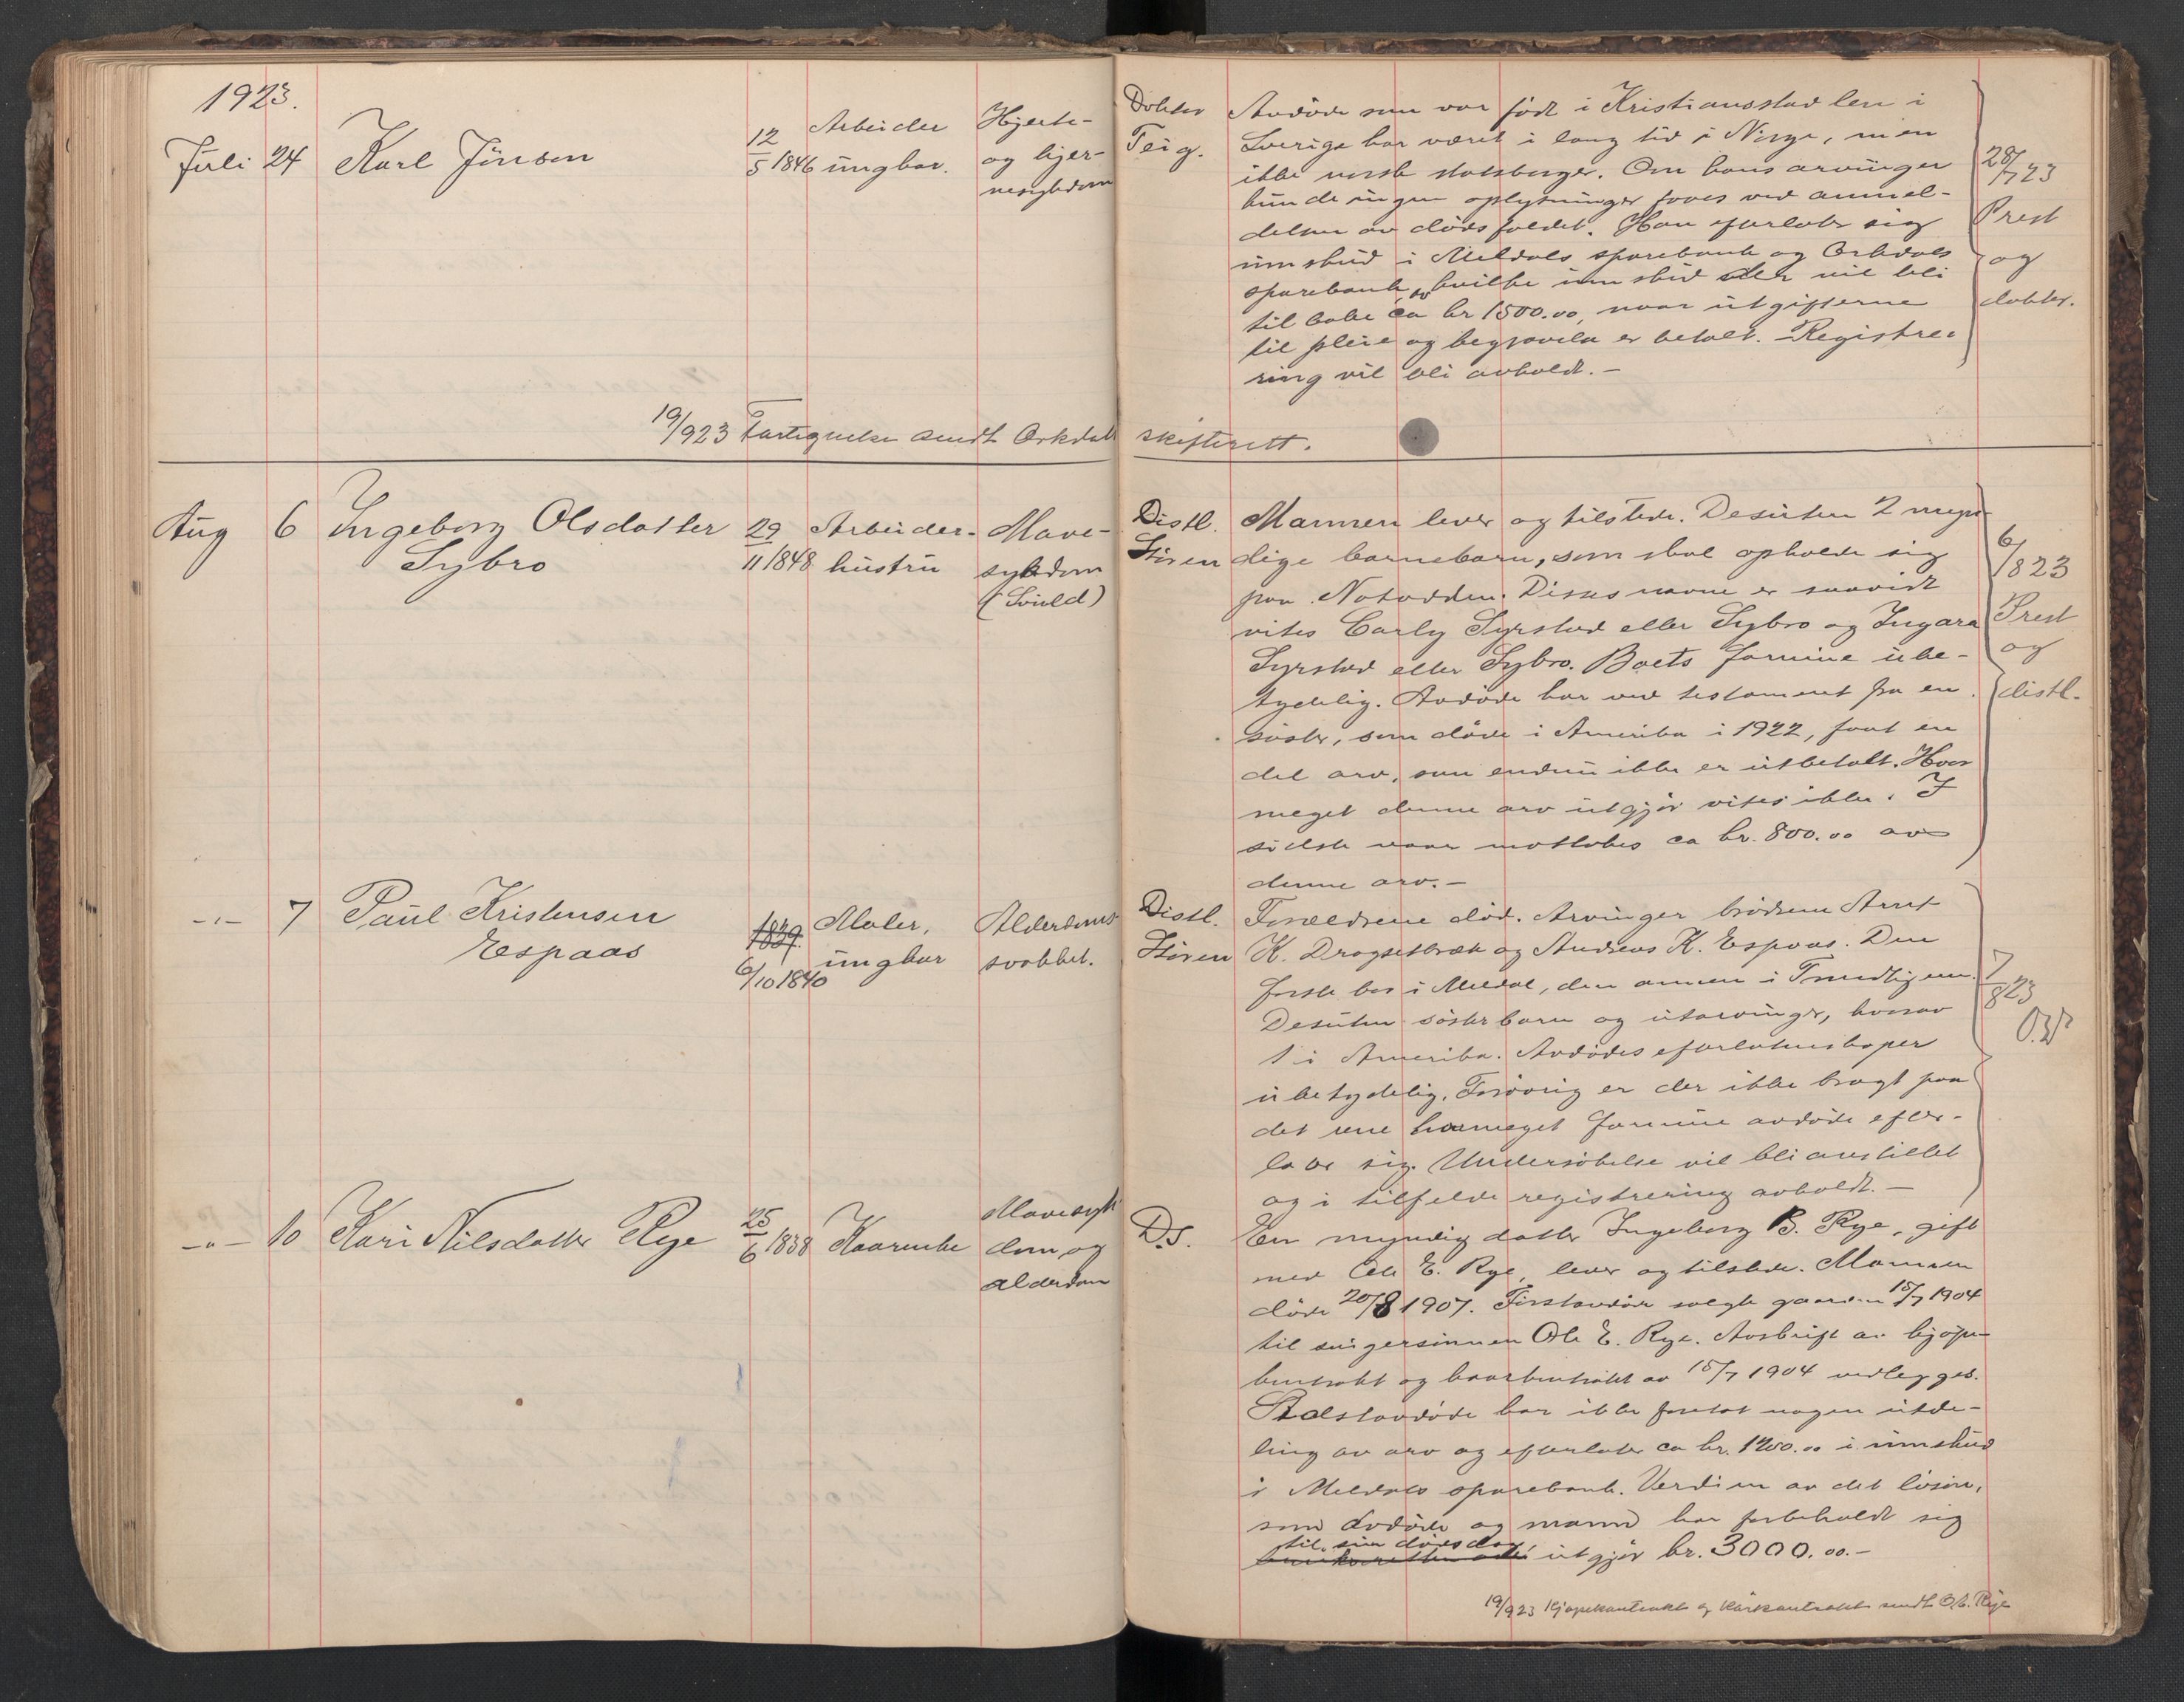 1923.
Juli 24 Karl Jönson 12/5 1846 Arbeider ungkar. Hjerte- og hjernesygdom
Doktor Teig.
Avdøde som var født i Kristiansstad len i
Sverige har været i lang tid i Norge, men
ikke norsk statsborger. Om hans arvinger
kunde ingen oplysninger faaes ved anmel-
delsen av dødsfaldet. Han efterlater sig
innskud i Meldals sparebank og Orkdals
sparebank, hvilke innskud vil bli
tilbake ca kr 1500.00, naar utgifterne
til pleie og begravelse er betalt. Registre-
ring vil bli avholdt. -
28/7 23
Prest
og
doktor.
19/9 23 Fortegnelse sendt Orkdal skifterett.
Aug 6 Ingeborg Olsdatter Sybro 29/11 1848 Arbeider- hustru Mave- sykdom (Svuld)
Distl. Støren
Mannen lever og tilstede. Desuten 2 myn-
dige barnebarn, som skal opholde sig
paa Notodden. Disses navne er saavidt
vites Carly Syrstad eller Sybro og Ingara
Syrstad eller Sybro. Boets formue ube-
tydelig. Avdøde har ved testament fra en
søster, som døde i Amerika i 1922, faat en
del arv, som endnu ikke er utbetalt. Hvor
meget denne arv utgjør vites ikke. I
sidste vaar mottokes ca kr. 800.00 av
denne arv. -
6/8 23
Prest
og
distl.
-"- 7 Paul Kristensen Espaas 1839. 6/10 1840 Maler, ungkar Alderdoms- svakhet.
Distl. Støren
Forældrene død. Arvinger brødrene Arnt
K. Dragsetbræk og Andreas K. Espaas. Den
første bor i Meldal, den annen i Trondhjem.
Desuten søsterbarn og utarvinger, hvorav
1 i Amerika. Avdødes efterlatenskaper
ubetydelig. Forøvrig er der ikke bragt paa
det rene hvormeget formue avdøde efter-
later sig. Undersøkelse vil bli anstillet
og i tilfelde registrering avholdt. -
7/8 23
-"- 10 Kari Nilsdatter Rye 25/6 1838 Kaarenke Mavesyk- dom og alderdom
D.s.
En myndig datter Ingeborg B. Rye, gift
med Ole E. Rye, lever og tilstede. Mannen
døde 20/8 1907. Førstavdøde solgte gaarden 15/7 1904
til svigersønnen Ole E. Rye. Avskrift av kjøpe-
kontrakt og kaarkontrakt av 15/7 1904 vedlegges.
Sidstavdøde har ikke foretat nogen utde-
ling av arv og efterlater ca kr. 1200.00 i innskud
i Meldals sparebank. Verdien av det løsøre,
som avdøde og mannen har forbeholdt sig
til sin dødsdag utgjør kr. 3000.00. -
19/9 23 Kjøpekontrakt og kårkontrakt sendt O.E. Rye